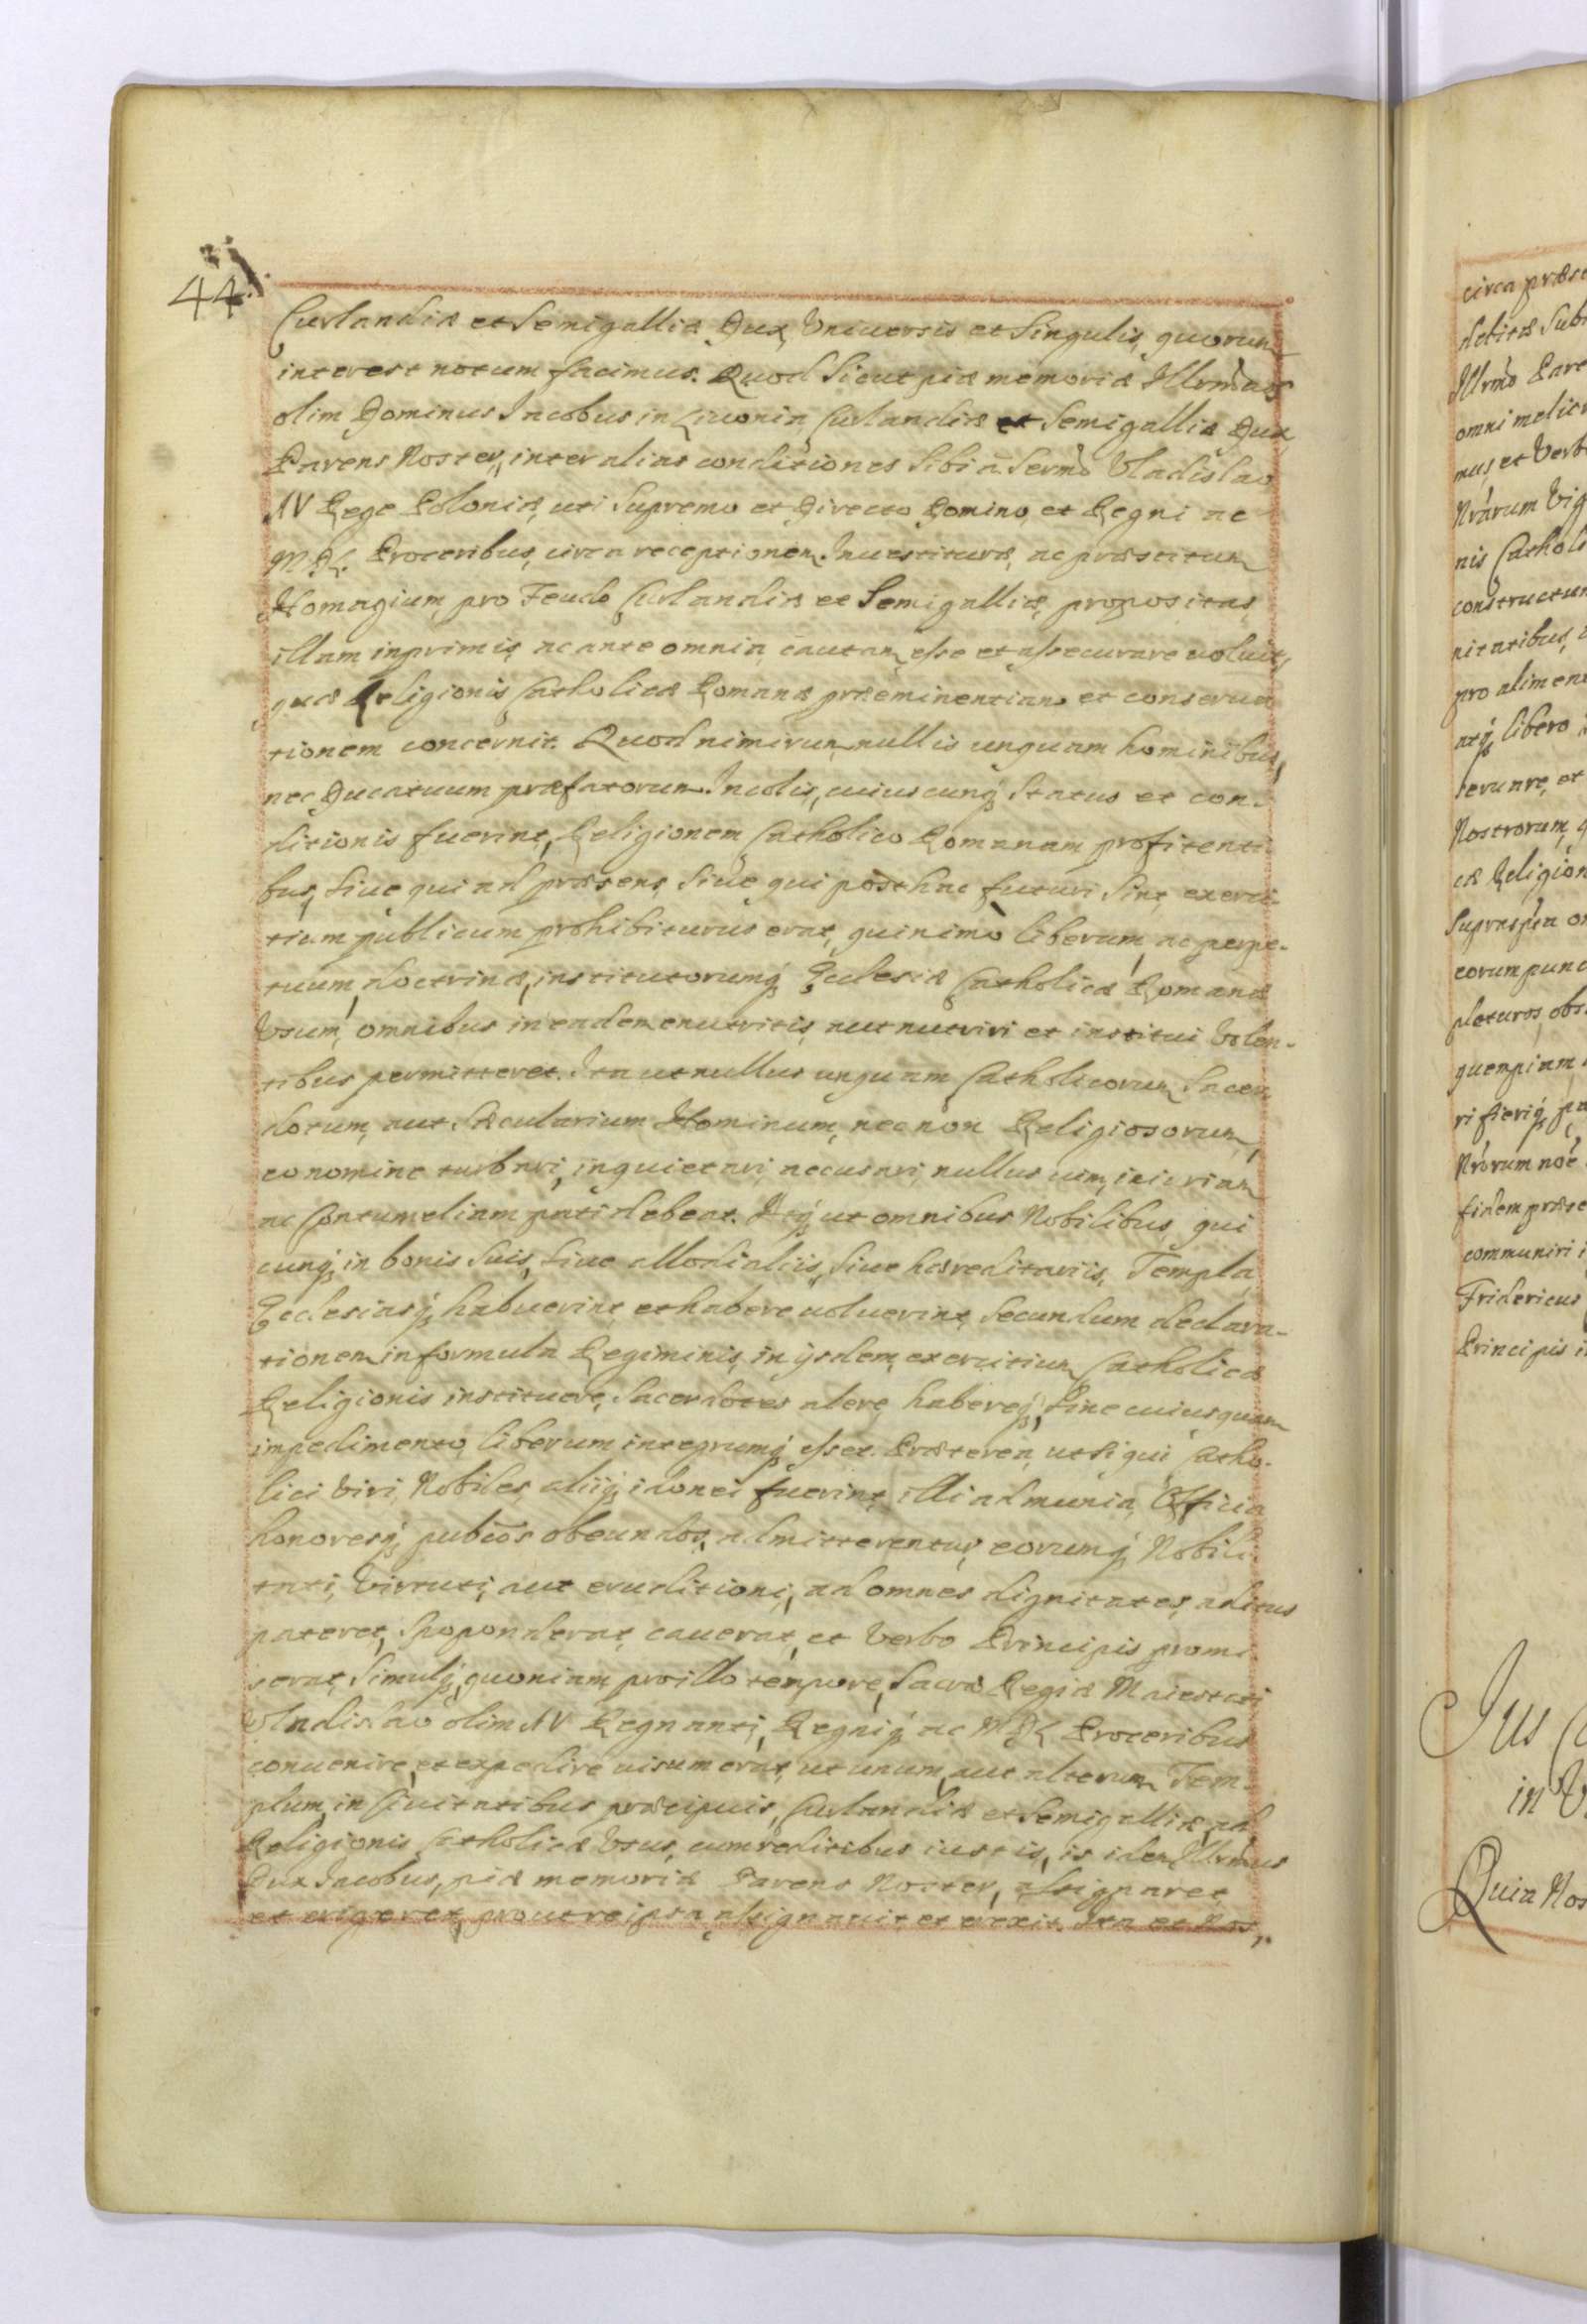 44.
Curlandiæ et Semigalliæ Dux, Vniuersis et Singulis, quorum
interest notum facimus. Quod Sicut piæ memoriæ Illrmus
olim Dominus Iacobus in Liuonia, Curlandiæ et Semigalliæ Dux,
Parens Noster, inter alias conditiones Sibi à Sermo Vladislao
IV Rege Poloniæ, uti Supremo et Directo Domino, et Regni ac
M.D.L. Proceribus, circa receptionem Inuestituræ, ac præstitum
Homagium, pro Feudo Curlandiæ et Semigalliæ, propositas,
illam inprimis, ac ante omnia, cautam esse et assecurare uoluit,
quæ Religionis Catholicæ Romanæ præeminentiam et conserua
tionem concernit. Quod nimirum nullis unquam hominibus,
nec Ducatuum præfatorum Incolis, cuiuscunq; Status et con-
ditionis fuerint, Religionem Catholico Romanam profitenti
bus, Siue qui ad præsens, Siue qui posthac futuri Sint, exerci-
tium publicum prohibiturus erat, quinimò liberum, ac perpe-
tuum, doctrinæ, institutorumq; Ecclesiæ Catholicæ Romanæ
Vsum, omnibus in eadem enutritis, aut nutriri et institui Volen-
tibus permitteret. Ita ut nullus unquam Catholicorum Sacer
dotum, aut Sæcularium Hominum, nec non Religiosorum,
eo nomine turbari, inquietari, accusari, nullus uim, iniuriam
ac Contumeliam pati debeat. Utq; ut omnibus Nobilibus, qui
cunq; in bonis Suis, Siue allodialiis, Siue hæreditariis, Templa,
Ecclesiasq; habuerint, et habere uoluerint, Secundum declara-
tionem in formula Regiminis, in ijsdem, exercitium Catholicæ
Religionis instituere, Sacerdotes alere, habereq; Sine cuiusquam
impedimento, liberum integrumq; esset. Præterea, ut Si qui Catho-
lici Viri, Nobiles, aliiq; idonei fuerint, illi ad munia, Officia
honoresq; pubcos obeundos, admitterentur, eorumq; Nobili
tati, Virtuti, aut eruditioni, ad omnes dignitates, aditus
pateret, Spoponderat, cauerat, et Verbo Principis promi
serat, Simulq; quoniam pro illo tempore, Sacræ Regiæ Maiestati
Vladislao olim IV Regnanti, Regniq; ac M.D.L. Proceribus
conuenire, et expedire uisum erat, ut unum, aut alterum Tem-
plum, in Ciuitatibus præcipuis, Curlandiæ et Semigalliæ, ad
Religionis Catholicæ Vsus, cum reditibus iustis, is idem Illrmus
Dux Iacobus, piæ memoriæ Parens Noster, assignaret
et erigeret, prout reipsa assignauit et erexit. Ita et Nos,
circa
debitæ
Illrmo
omni
mus, et
Nrarum
nis
constructum
nitatibus,
pro
atq; libero
seruare, et
Nostrorum,
cæ Religion
eorum
pleturos,
quempiam
ri fieriq;
Nrorum
fidem
communiri
Fridericus
Principis
Jus
in
Quia Nos